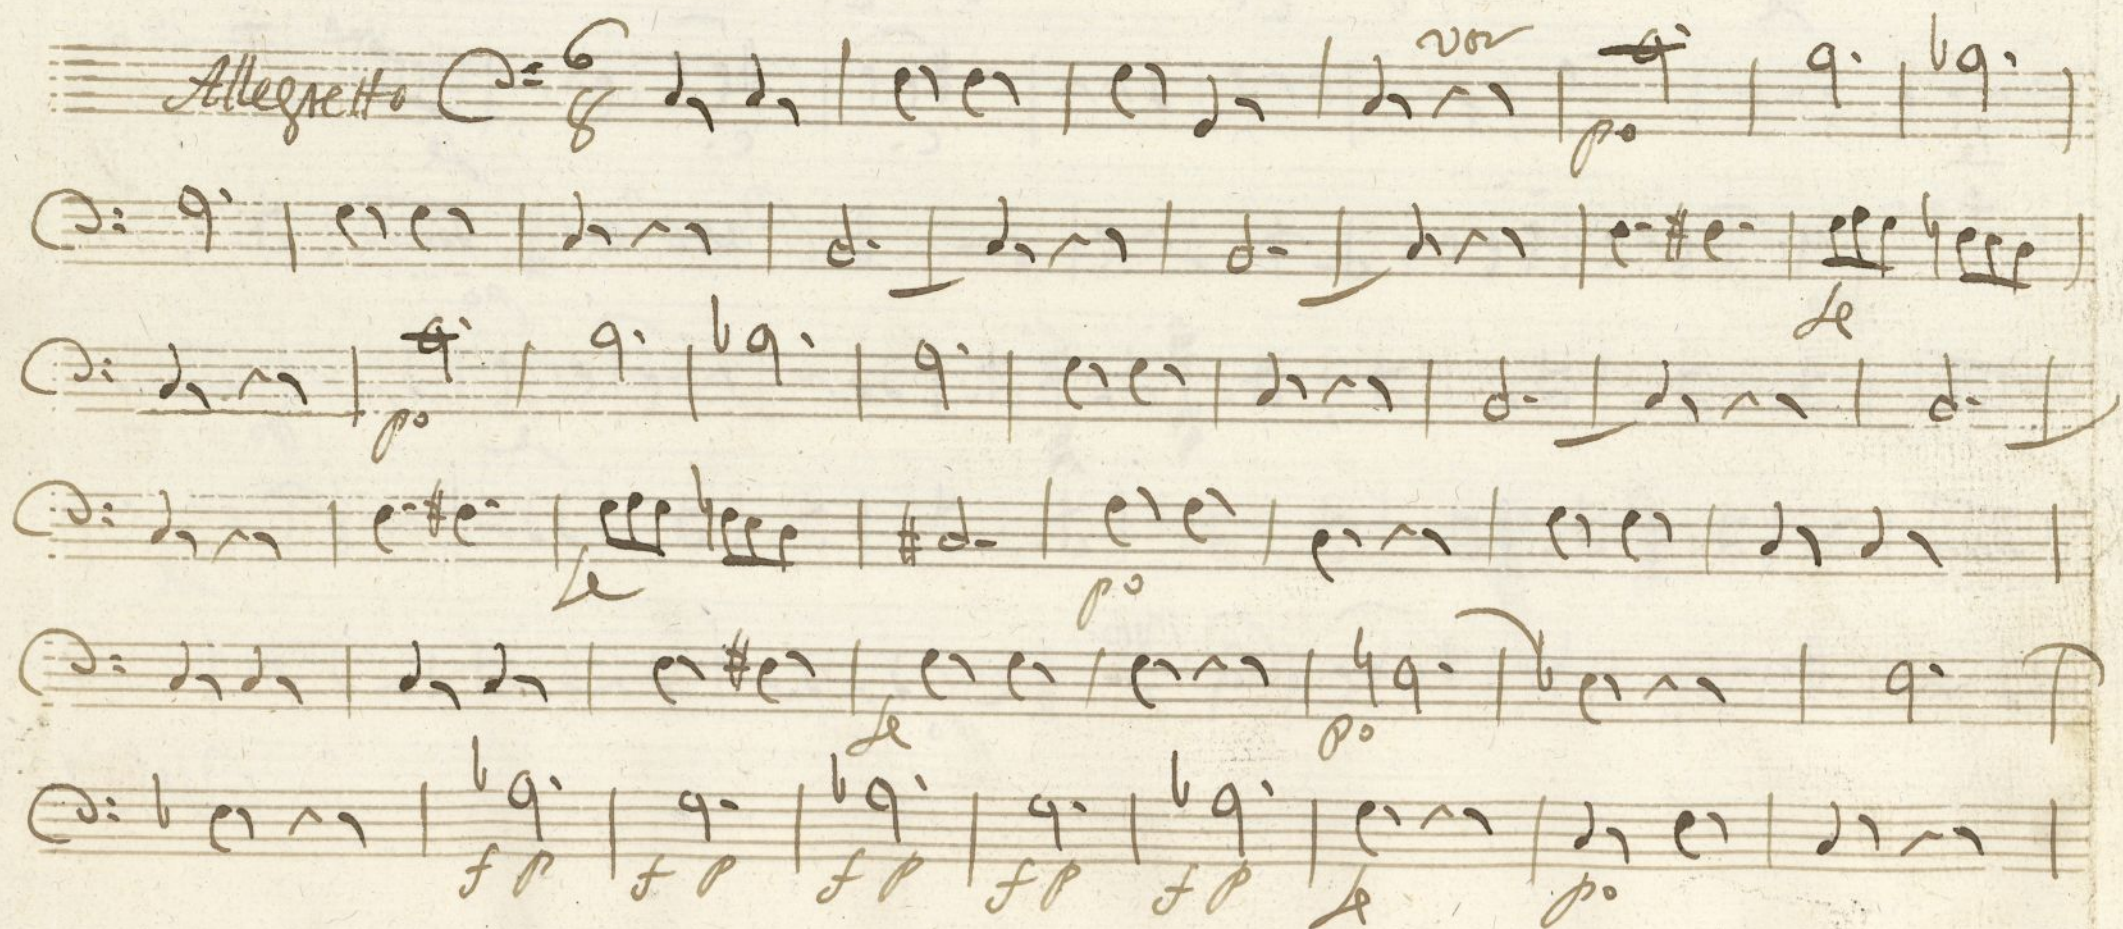 Allegretto 6 8 vor
po
fe
po
fe po
fe po
f p f p f p f p f p fe po